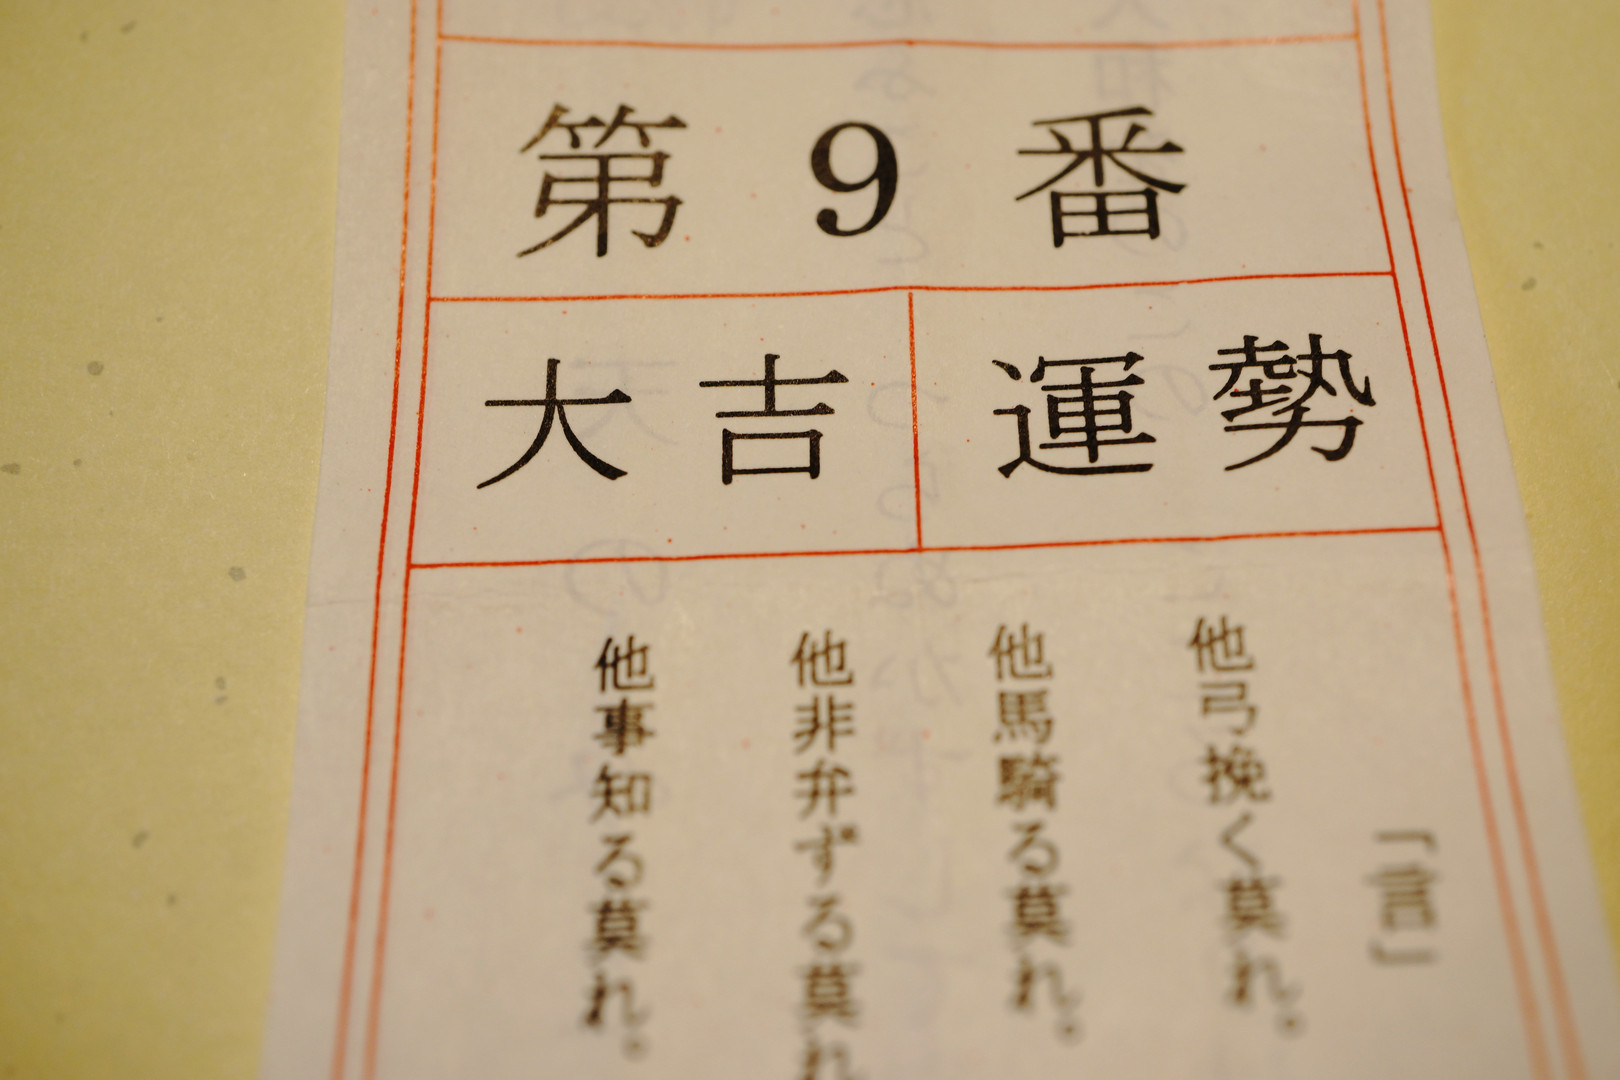 第9番
運勢
大吉
「言」
他弓挽く莫れ。
他馬騎る莫れ。
他非弁ずる莫れ
他事知る莫れ。